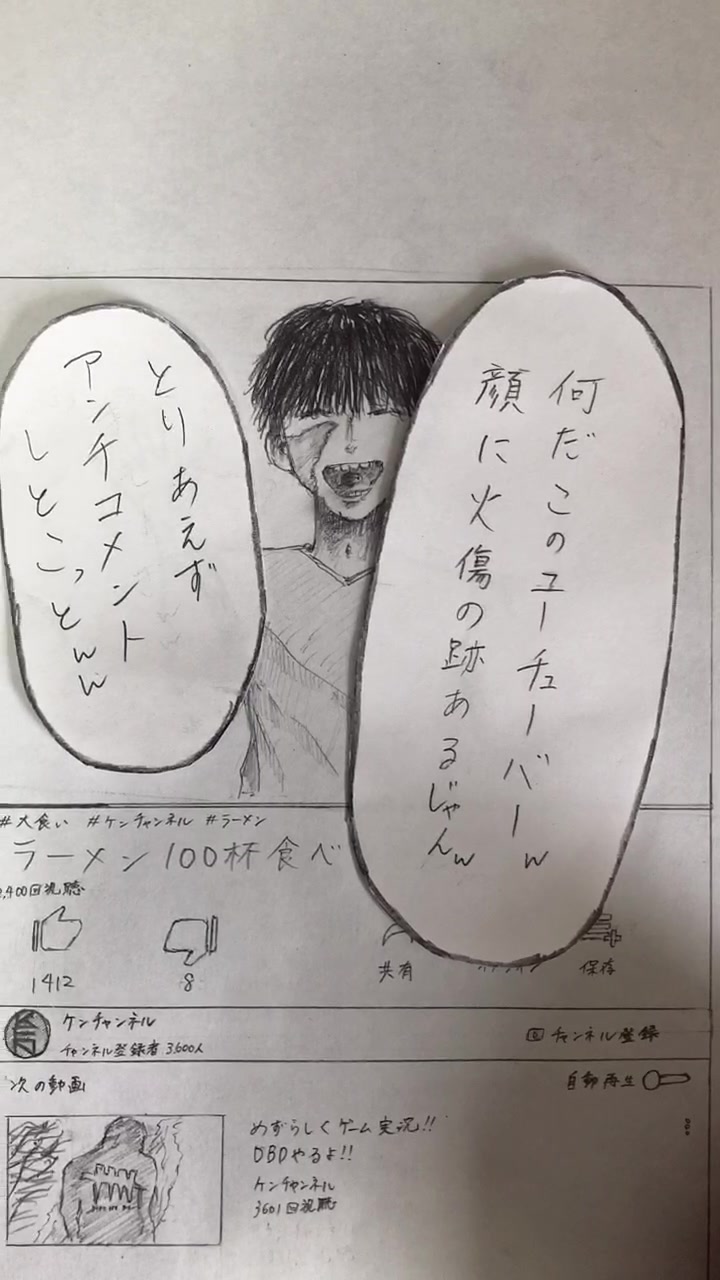 何だこのユーチューバーw
顔に火傷の跡あるじゃんw
とりあえず
アンチコメント
しとこっとww
#大食い #ケンチャンネル #ラーメン
ラーメン100杯食べ
,400回視聴
1412
8
共有
保存
ケンチャンネル
チャンネル登録者 3,600人
チャンネル登録
次の動画
自動再生
めずらしくゲーム実況!!
DBDやるよ!!
ケンチャンネル
3601回視聴